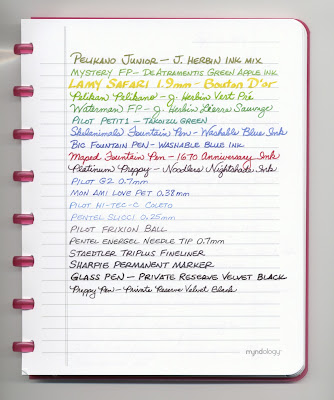 Pelikano Junior - J. Herbin Ink Mix
Mystery FP - DeAtramentis Green Apple Ink
Lamy Safari 1.9mm - Bouton D'or
Pelikan Pelikano - J. Herbin Vert Pré
Waterman FP - J. Herbin Lierre Sauvage
Pilot Petit1 - Takoizu Green
Skelanimals Fountain Pen - Washable Blue Ink
Bic Fountain Pen - Washable Blue Ink
Maped Fountain Pen - 1670 Anniversary Ink
Platinum Preppy - Noodlers Nightshade Ink
Pilot G2 0.7mm
Mon Ami Love Pet 0.38mm
Pilot Hi-Tec-C Coleto
Pentel Slicci 0.25mm
Pilot Frixion Ball
Pentel Energel Needle Tip 0.7mm
Staedtler Triplus Fineliner
Sharpie Permanent Marker
Glass Pen - Private Reserve Velvet Black
Preppy Pen - Private Reserve Velvet Black
myndology